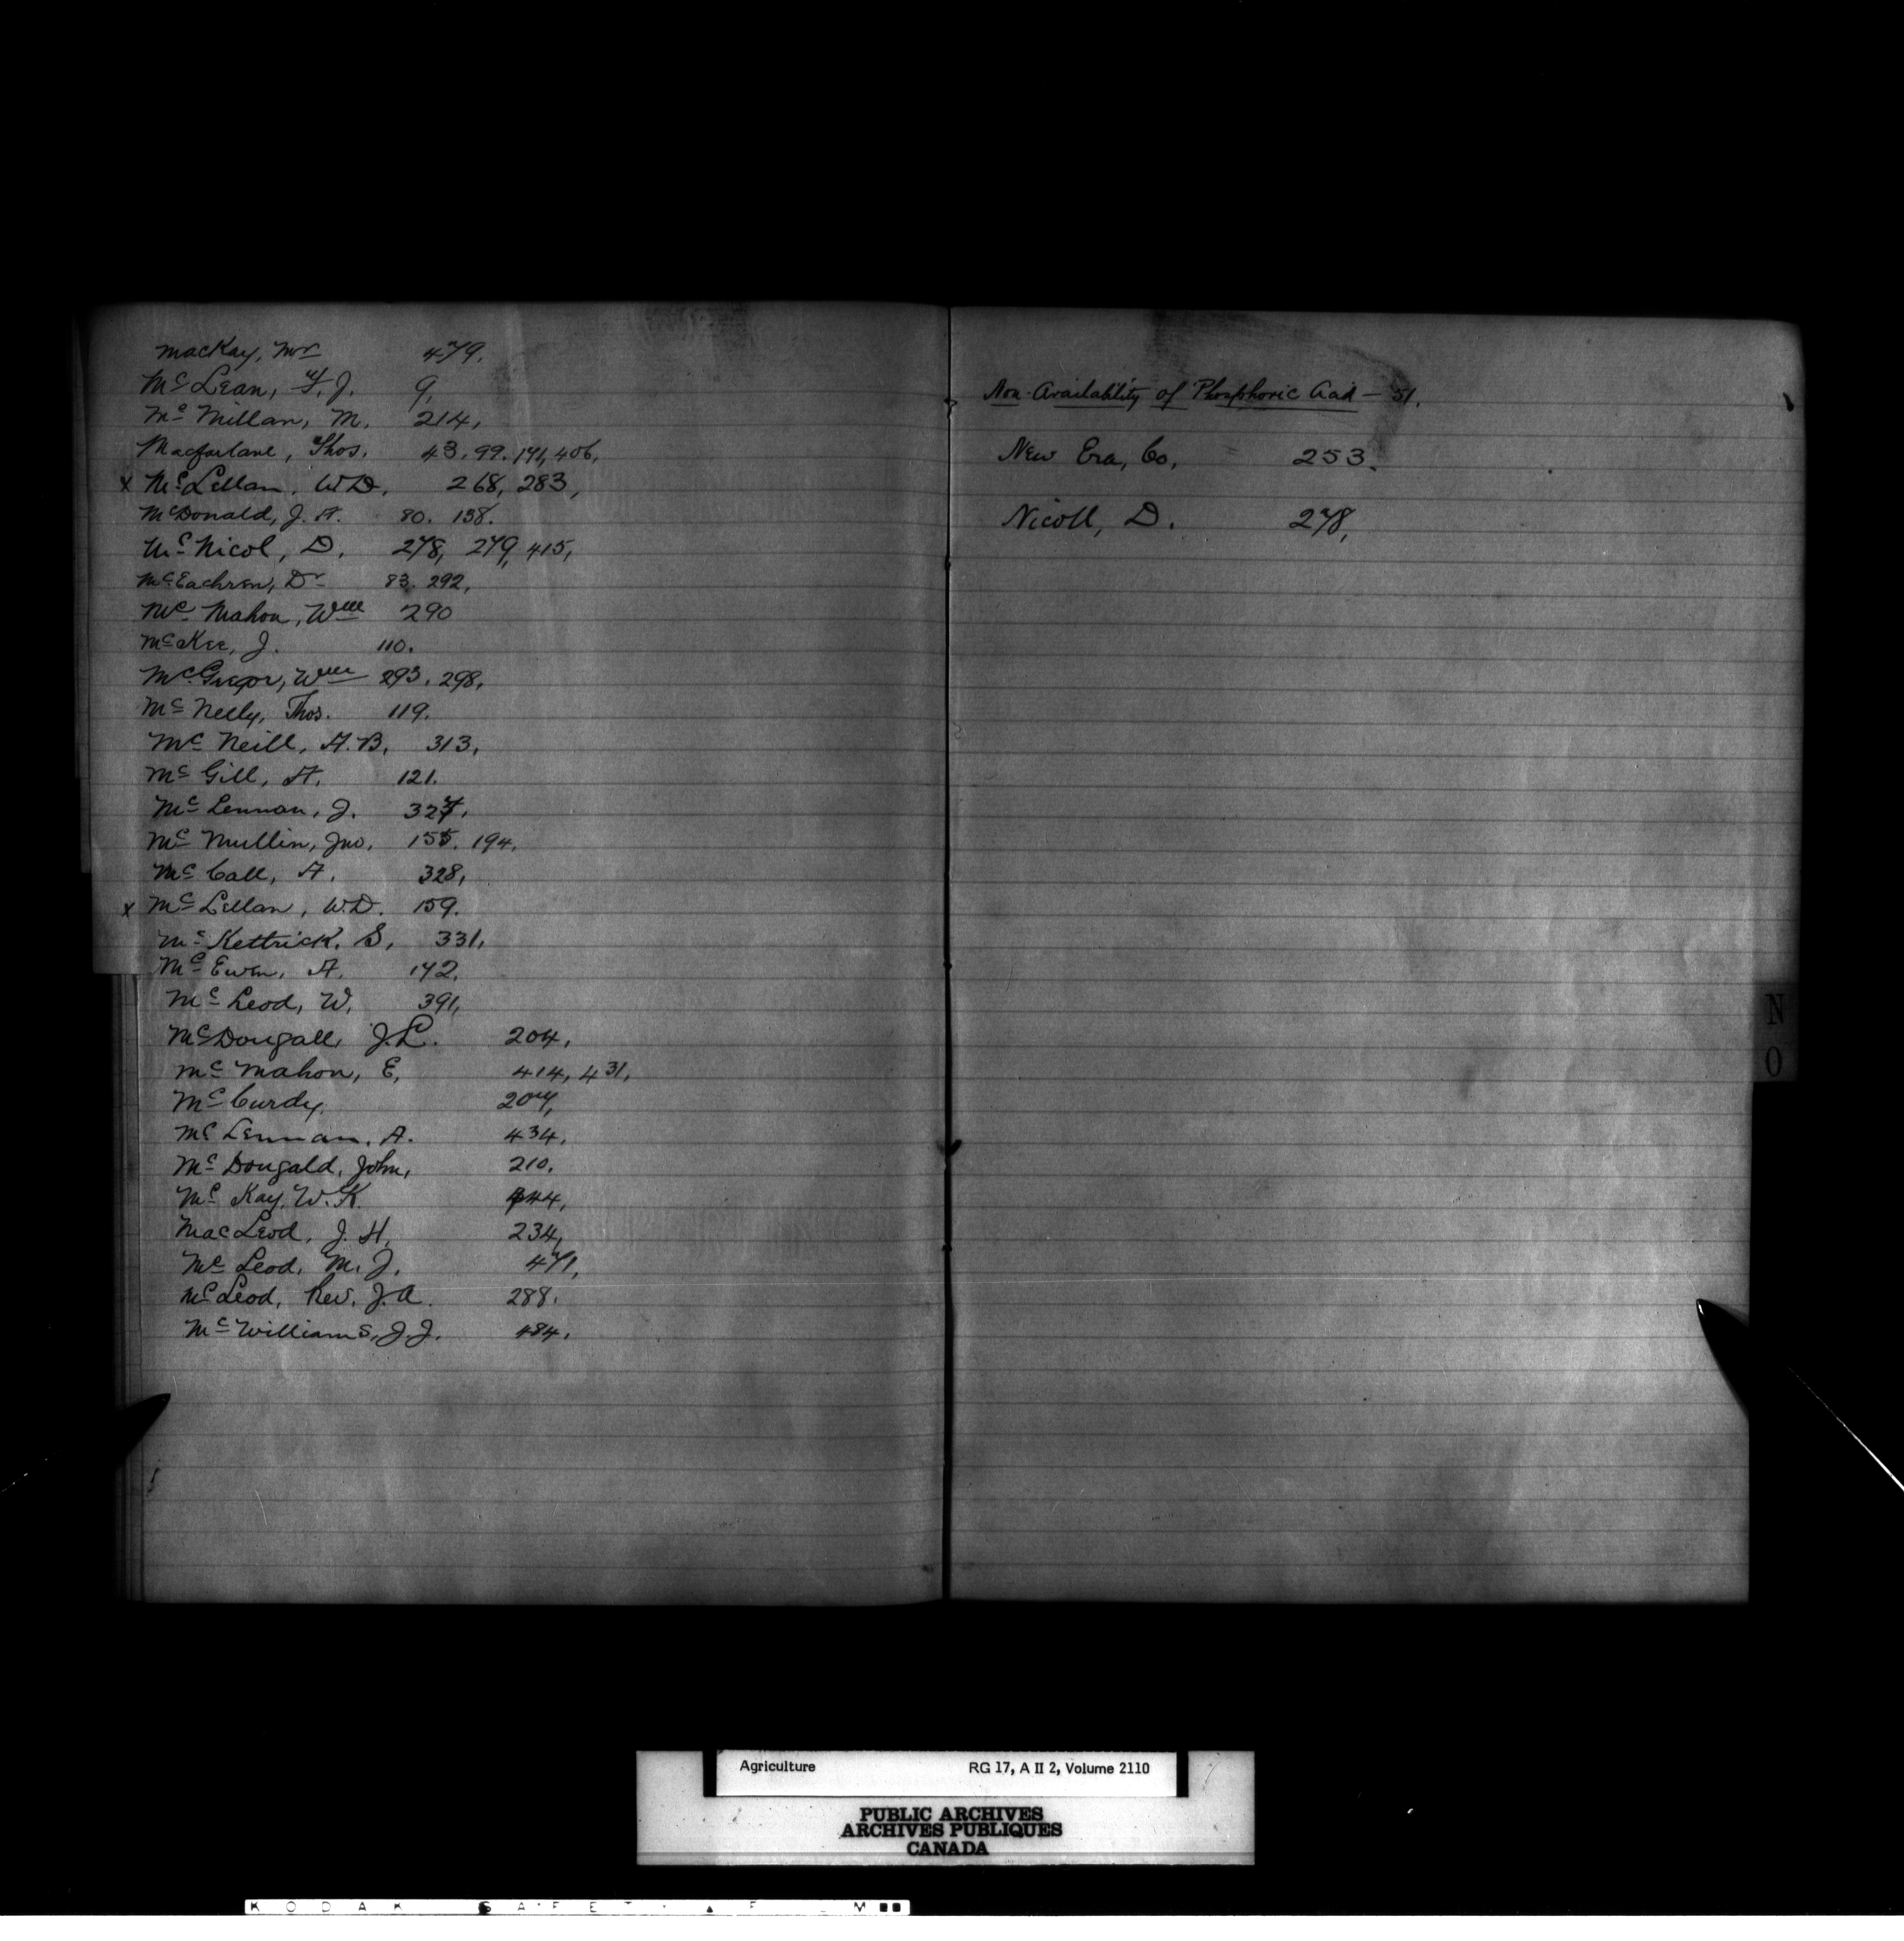 MacKay, Mr 479.
Mc Lean, F. J. 9,
Mc Millan, M. 214,
Macfarlane, Thos. 43. 99. 191, 406,
x McLellan, W.D. 268, 283,
McDonald, J. A. 80. 138.
Mc Nicol, D. 278, 279, 415,
McEachren, Dr 83. 292,
Mc Mahon, Wm 290
McKee, J. 110.
McGregor, Wm 293. 298,
Mc Neely, Thos. 119.
Mc Neill, A.B. 313,
Mc Gill, A. 121.
Mc Lennan, J. 327,
Mc Mullin, Jno. 155. 194.
Mc Call, A. 328,
x Mc Lellan, W.D. 159.
Mc Kettrick, S, 331,
Mc Ewen, A. 142.
Mc Leod, W, 391,
McDougall, J.L. 204,
Mc Mahon, E, 414, 431,
McCurdy, 207,
Mc Lennan, A. 434,
Mc Dougald, John, 210.
Mc Kay, W. K. 444,
MacLeod, J. H, 234,
Mc Leod, M. J. 471,
McLeod, Rev. J. A. 288.
Mc Williams, J. J. 484,
Non-Availability of Phosphoric Acid – 51.
New Era, Co, 253.
Nicoll, D. 278,
N
O
Agriculture RG 17, A II 2, Volume 2110
PUBLIC ARCHIVES
ARCHIVES PUBLIQUES
CANADA
KODAK SAFETY